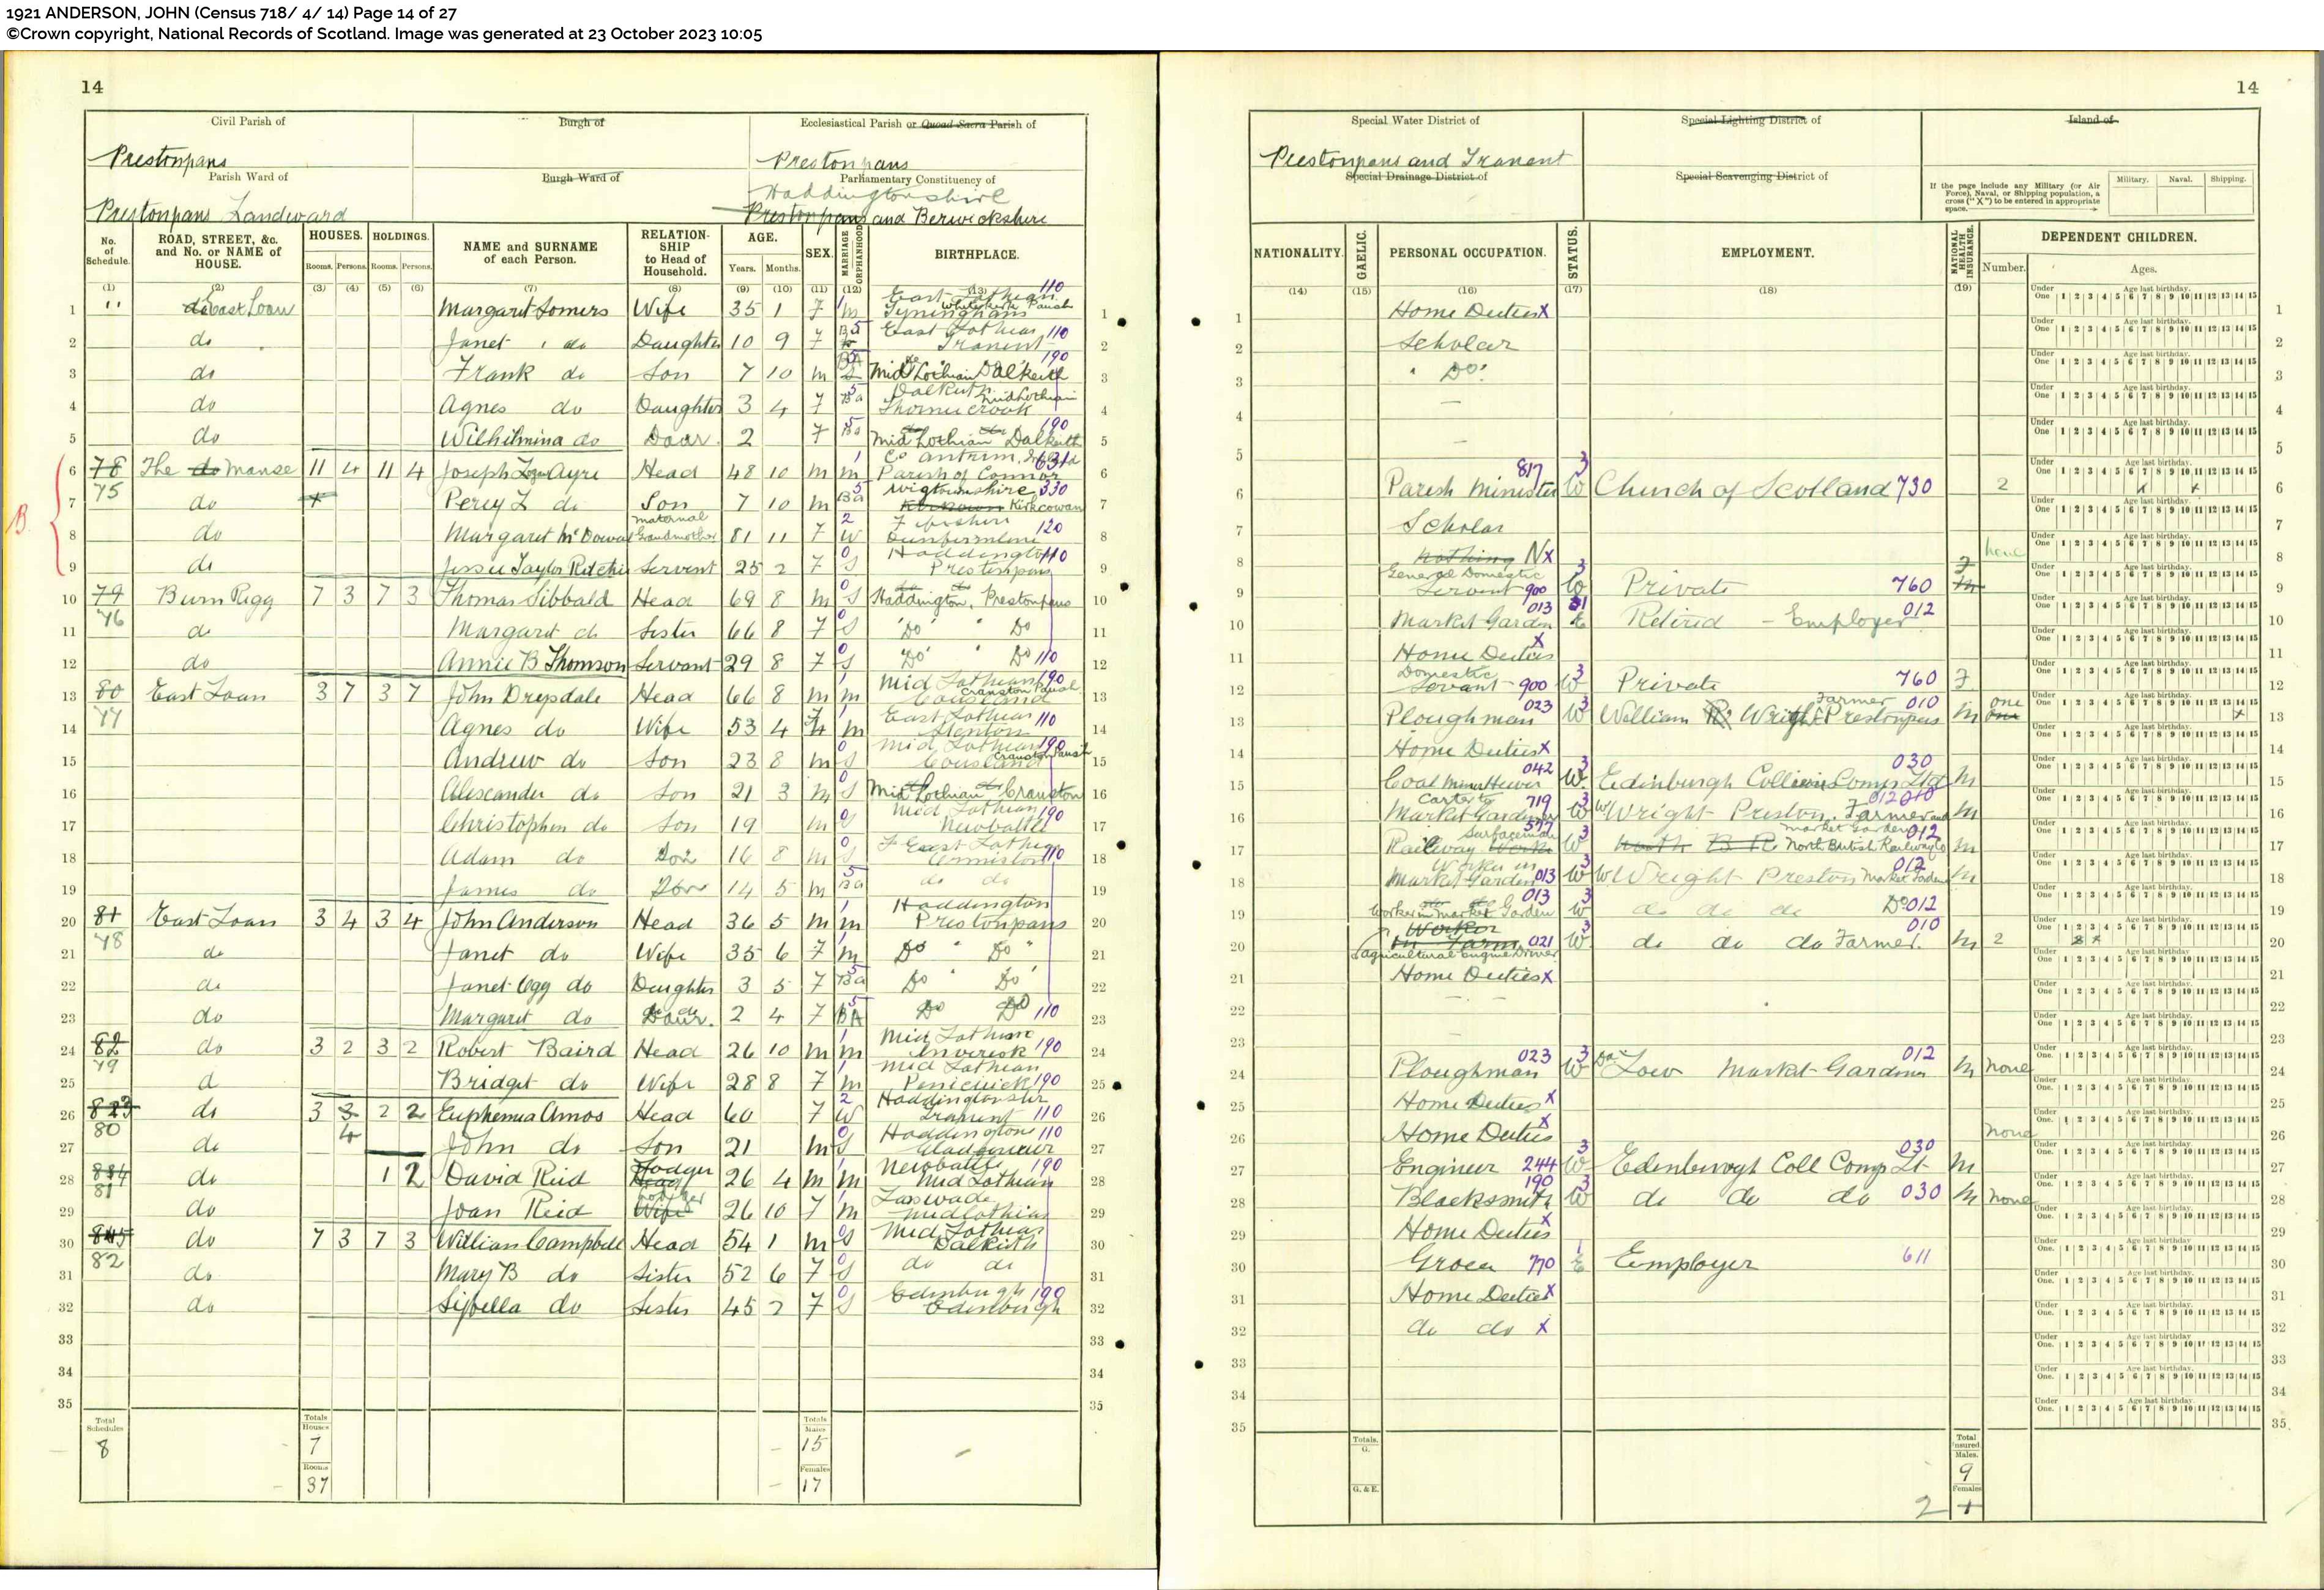 1921 ANDERSON, JOHN (Census 718/ 4/ 14) Page 14 of 27
©Crown copyright, National Records of Scotland. Image was generated at 23 October 2023 10:05
14
14
Civil Parish of Burgh of Ecclesiastical Parish or Quoad Sacra Parish of
Prestonpans Prestonpans
Parish Ward of Burgh Ward of Parliamentary Constituency of
Haddingtonshire
Prestonpans Landward Prestonpans and Berwickshire
Special Water District of Special Lighting District of Island of
Prestonpans and Tranent
Special Drainage District of Special Scavenging District of
If the page include any Military (or Air Force), Naval, or Shipping population, a cross ("X") to be entered in appropriate space. Military. Naval. Shipping.
No. of Schedule. ROAD, STREET, &c. and No. or NAME of HOUSE. HOUSES. HOLDINGS. NAME and SURNAME of each Person. RELATION-SHIP to Head of Household. AGE. SEX. MARRIAGE ORPHANHOOD BIRTHPLACE.
Rooms. Persons. Rooms. Persons. Years. Months.
(1) (2) (3) (4) (5) (6) (7) (8) (9) (10) (11) (12) (13)
NATIONALITY. GAELIC. PERSONAL OCCUPATION. STATUS. EMPLOYMENT. NATIONAL HEALTH INSURANCE. DEPENDENT CHILDREN.
Number. Ages.
(14) (15) (16) (17) (18) (19)
Under One Age last birthday. 1 2 3 4 5 6 7 8 9 10 11 12 13 14 15
1 " do East Loan Margaret Somers Wife 35 1 F m East Lothian Whitekirk Parish Tyninghame 110 Home Duties X
2 do Janet do Daughter 10 9 F East Lothian Tranent 110 Scholar
3 do Frank do Son 7 10 m Mid Lothian Dalkeith 190 Do
4 do Agnes do Daughter 3 4 F Ba Dalkeith Midlothian —
5 do Wilhilmina do Daur. 2 F Ba Mid Lothian Dalkeith 190 —
B.
6 78 75 The do Manse 11 4 11 4 Joseph Logan Ayre Head 48 10 m m Co Antrim, Ireland Parish of Connor Parish Minister 817 W Church of Scotland 730 2
7 do Percy L do Son 7 10 m Ba Wigtownshire Kirkcowan 330 Scholar
8 do Margaret McDowal maternal Grandmother 81 11 F W Fifeshire Dunfermline 120 nothing Nx none
9 do Jessie Taylor Ritchie Servent 25 2 F S Haddington Prestonpans 110 General Domestic Servent 900 W Private 760
10 79 76 Burn Rigg 7 3 7 3 Thomas Sibbald Head 69 8 m S Haddington, Prestonpans Market Garden 013 E Retired - Employer 012
11 do Margaret do Sister 66 8 F S Do Do Home Duties X
12 do Annie B Thomson Servant 29 8 F S Do Do 110 Domestic Servant 900 W Private 760 F
13 80 77 East Loan 3 7 3 7 John Drysdale Head 66 8 m m Mid Lothian Cranston Parish Cousland 190 Ploughman 023 W William R. Wright Farmer Prestonpans 010 m one
14 Agnes do Wife 53 4 F m East Lothian Stenton 110 Home Duties X
15 Andrew do Son 23 8 m S Mid Lothian Cranston Parish Cousland 190 Coal Miner Hewer 042 W. Edinburgh Collieries Comp Ltd 030 m
16 Alexander do Son 21 3 m S Mid Lothian Cranston Carter to Market Gardener 719 W W Wright Preston Farmer and Market Gardener m
17 Christopher do Son 19 m S Mid Lothian Newbattle 190 Railway Works Surfaceman W North B R North British Railway Co 012 m
18 Adam do Son 16 8 m S East Lothian Ormiston 110 Worker in Market Garden 013 W W Wright Preston Market Garden 012 m
19 James do Son 14 5 m Ba do do Worker in Market Garden 013 W do do do Do 012
20 81 78 East Loan 3 4 3 4 John Anderson Head 36 5 m m Haddington Prestonpans Worker in Farm 021 (agricultural Engine Driver) W do do do Farmer. 010 m 2
21 do Janet do Wife 35 6 F m Do Do Home Duties X
22 do Janet Ogg do Daughter 3 5 F Ba Do Do —
23 do Margaret do Daur. 2 4 F BA Do Do 110 —
24 82 79 do 3 2 3 2 Robert Baird Head 26 10 m m Mid Lothian Inveresk 190 Ploughman 023 W Low Market Gardner 012 m None
25 d Bridget do Wife 28 8 F m Mid Lothian Penicuick 190 Home Duties X
26 80 do 3 3 4 2 2 Euphemia Amos Head 60 F W Haddingtonshir Tranent 110 Home Duties X None
27 do John do Son 21 m S Haddington Gladsmuir 110 Engineer 244 W Edenburogh Coll Comp Lt 030 m
28 81 do 1 2 David Reid Head Lodger 26 4 m m Newbattle Mid Lothian 190 Blacksmith 190 W do do do 030 m None
29 do Joan Reid Wife Lodger 26 10 F m Lasswade Midlothian Home Duties X
30 82 do 7 3 7 3 William Campbell Head 54 1 m S Mid Lothian Dalkeith Grocer 770 E Employer 611
31 do Mary B do Sister 52 6 F S do do Home Duties X
32 do Sibella do Sister 45 2 F S Edinburgh Edinburgh 190 do do X
33
34
35
Total Schedules 8 Totals Houses 7 Rooms 37 Totals Males 15 Females 17
Totals. G. G. & E. Total Insured. Males. 9 Females 2